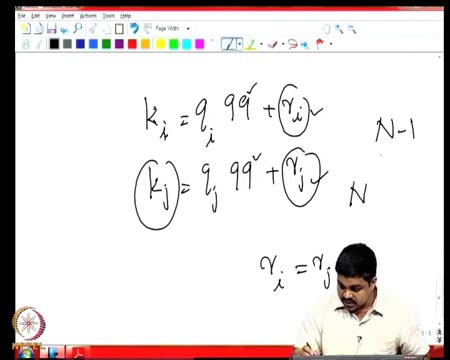 File Edit View Insert Actions Tools Help
Page Width
kᵢ = qᵢ 99 + rᵢ
N-1
kⱼ = qⱼ 99 + rⱼ
N
rᵢ = rⱼ